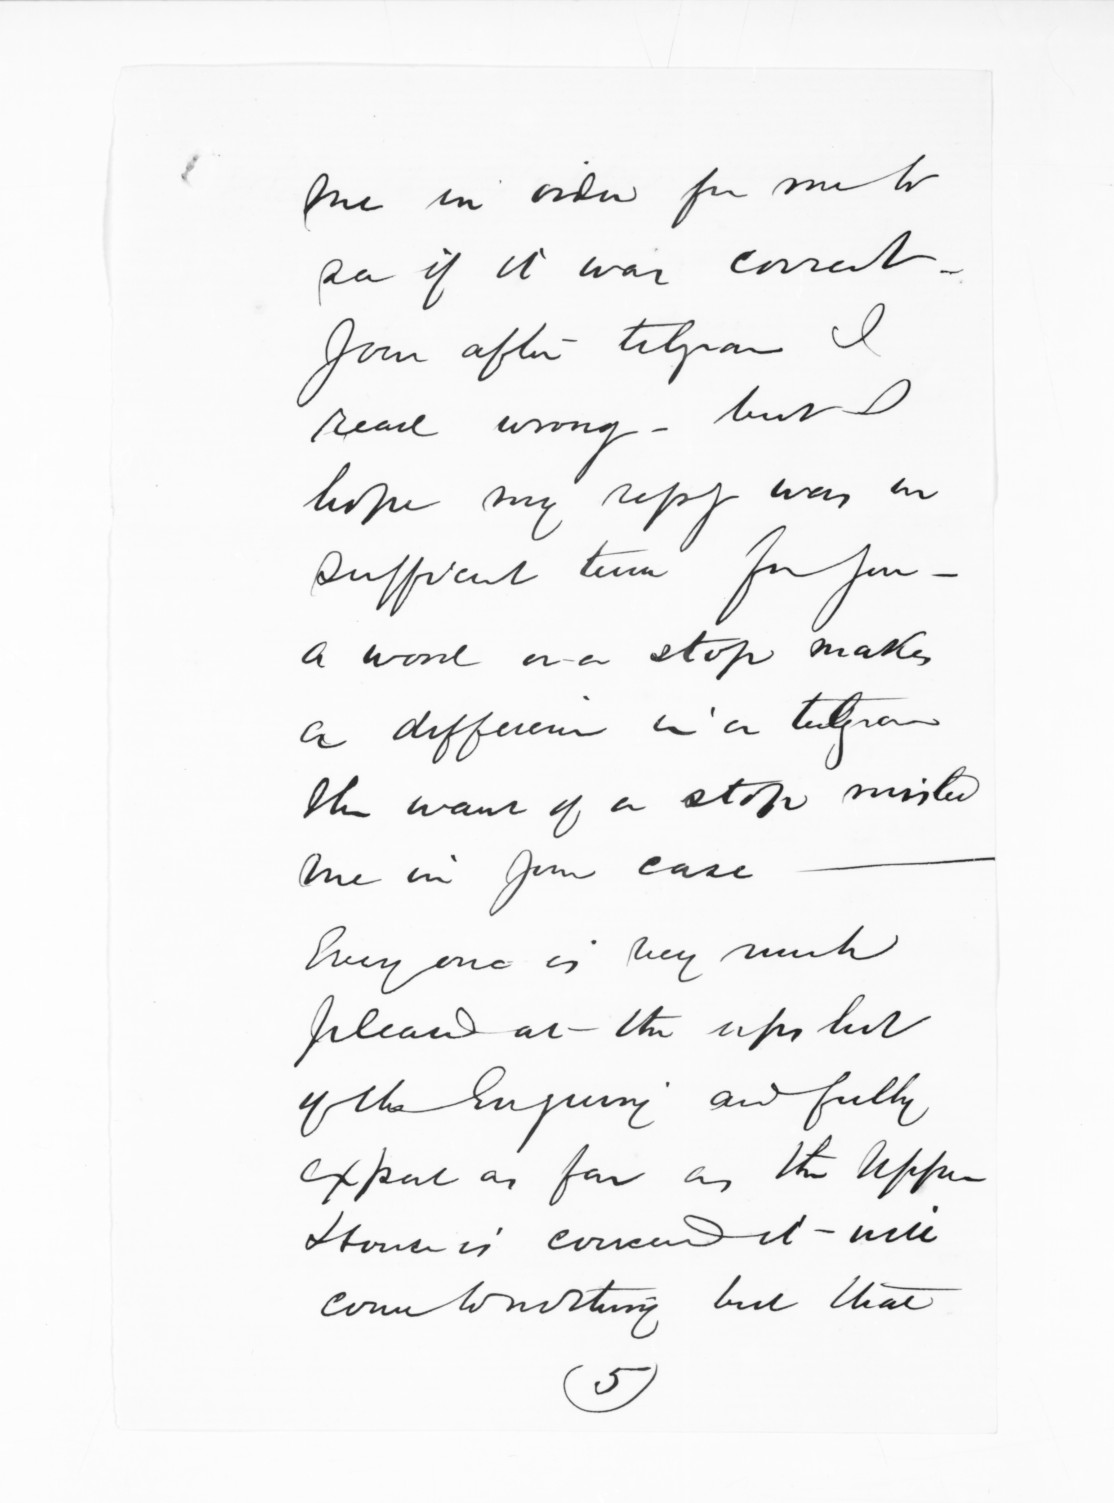 me in order for me to
see if it was correct -
Your after telegram I
read wrong - but I
hope my reply was in
sufficient time for you -
a word or a stop makes
a difference in a telegram
the want of a stop misled
me in your case —
Every one is very much
pleased at - the upshot
of the Enquiry and fully
expect as far as the Upper
House is concerned it - will
come to nothing but that
(5)